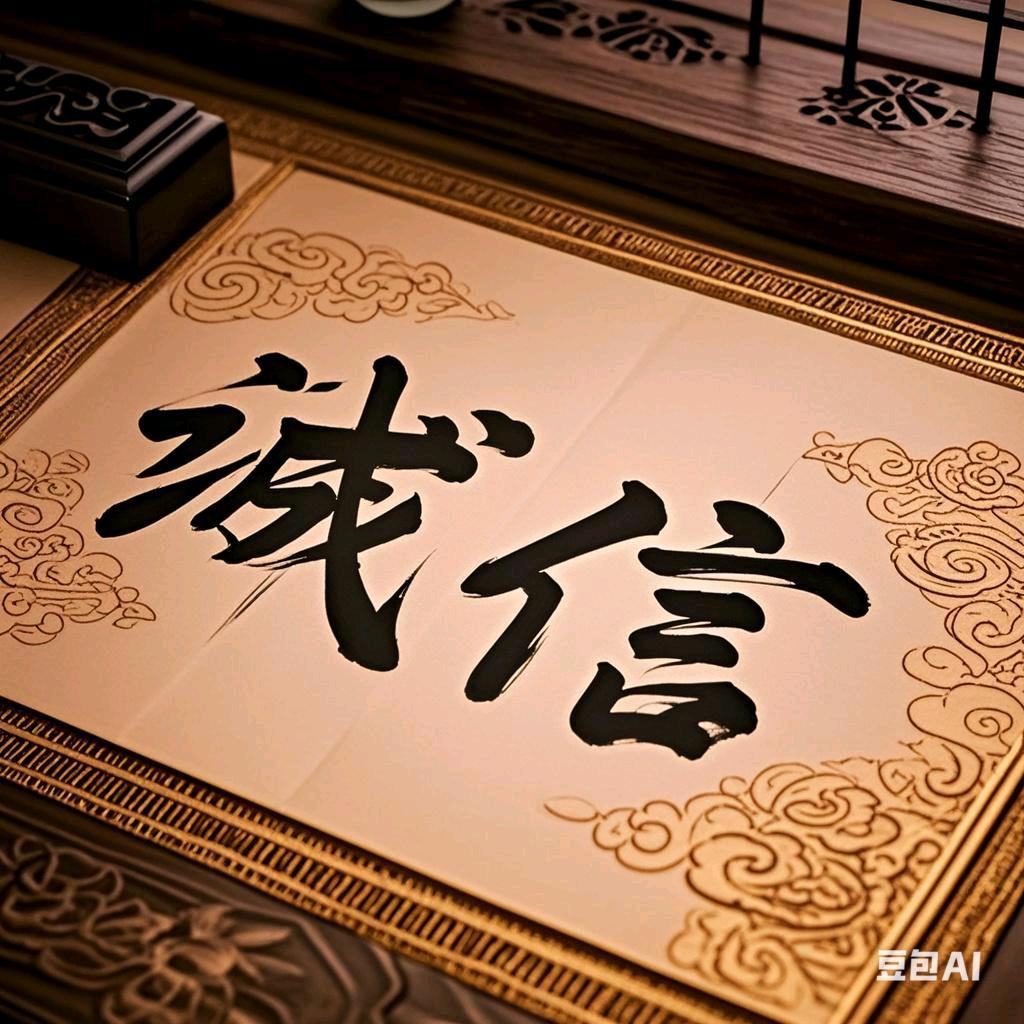 诚信
豆包AI